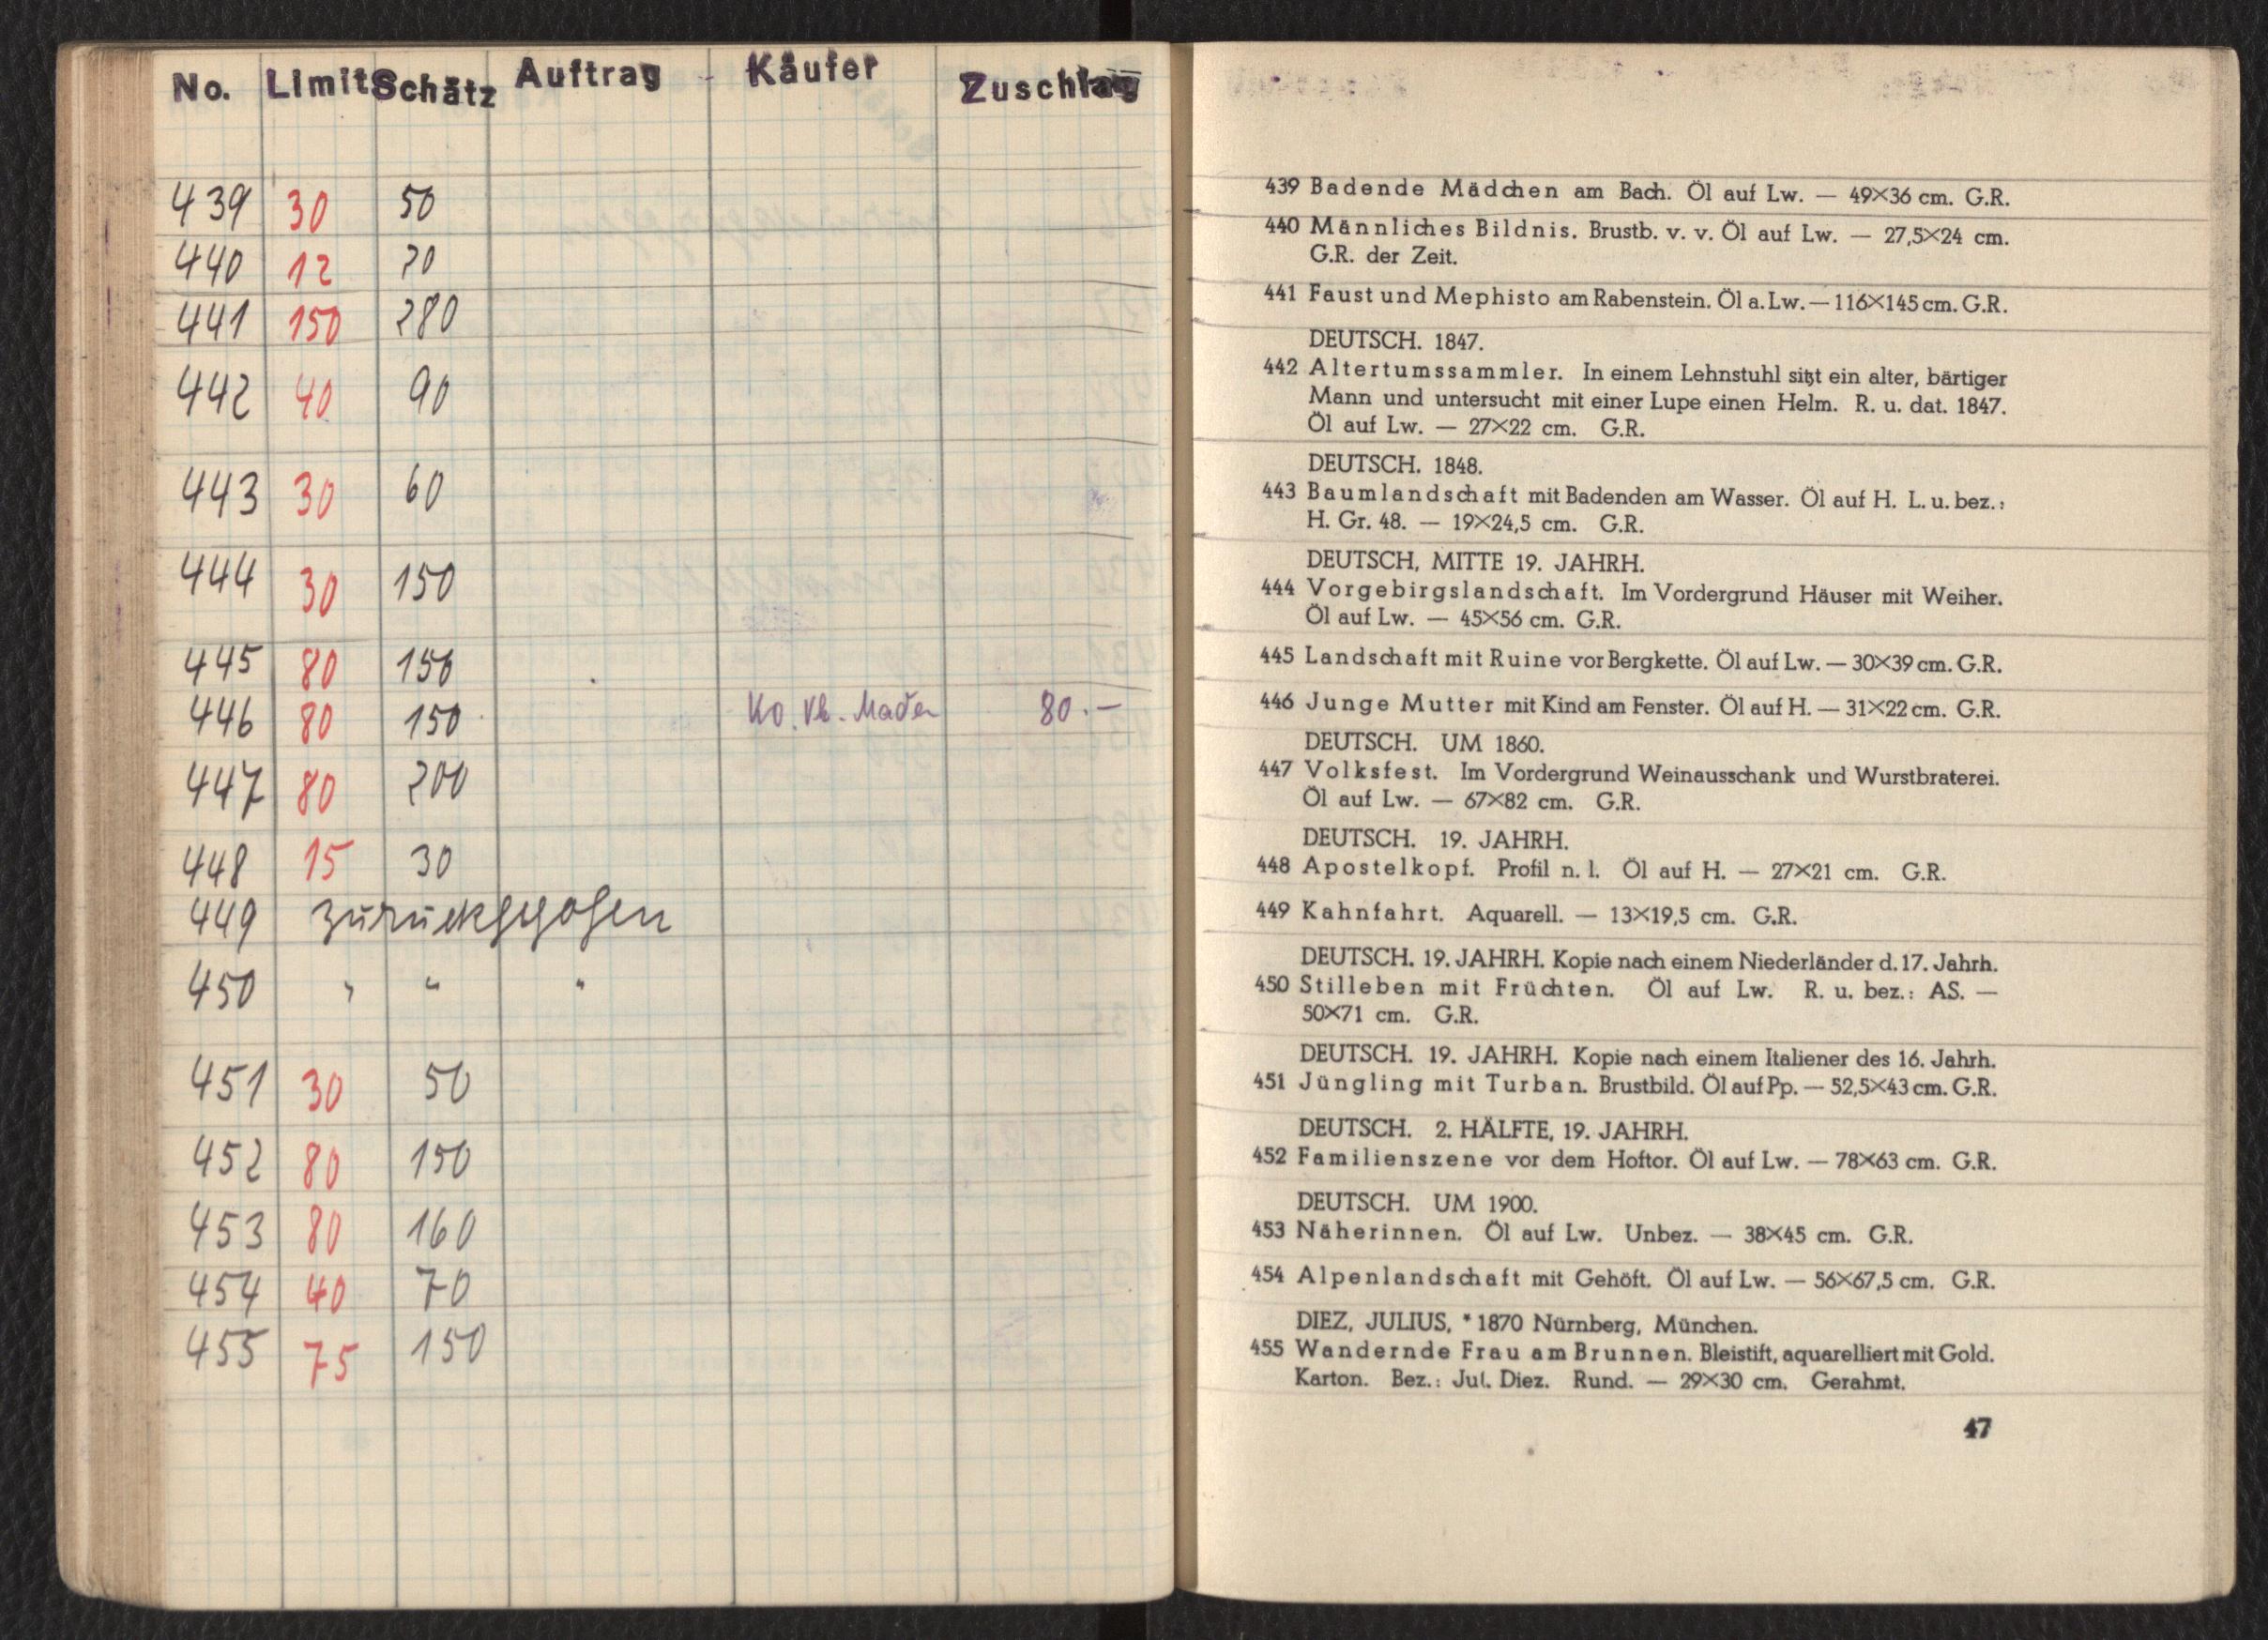 No. Limit Schätz Auftrag Käufer Zuschlag
439 30 50
440 12 20
441 150 280
442 40 90
443 30 60
444 30 150
445 80 150
446 80 150 Ko. Vb. Mader 80.-
447 80 200
448 15 30
449 zurückgezogen
450 " " "
451 30 50
452 80 150
453 80 160
454 40 70
455 75 150
439 Badende Mädchen am Bach. Öl auf Lw. — 49×36 cm. G.R.
440 Männliches Bildnis. Brustb. v. v. Öl auf Lw. — 27,5×24 cm.
G.R. der Zeit.
441 Faust und Mephisto am Rabenstein. Öl a. Lw. — 116×145 cm. G.R.
DEUTSCH. 1847.
442 Altertumssammler. In einem Lehnstuhl sitzt ein alter, bärtiger
Mann und untersucht mit einer Lupe einen Helm. R. u. dat. 1847.
Öl auf Lw. — 27×22 cm. G.R.
DEUTSCH. 1848.
443 Baumlandschaft mit Badenden am Wasser. Öl auf H. L. u. bez.:
H. Gr. 48. — 19×24,5 cm. G.R.
DEUTSCH, MITTE 19. JAHRH.
444 Vorgebirgslandschaft. Im Vordergrund Häuser mit Weiher.
Öl auf Lw. — 45×56 cm. G.R.
445 Landschaft mit Ruine vor Bergkette. Öl auf Lw. — 30×39 cm. G.R.
446 Junge Mutter mit Kind am Fenster. Öl auf H. — 31×22 cm. G.R.
DEUTSCH. UM 1860.
447 Volksfest. Im Vordergrund Weinausschank und Wurstbraterei.
Öl auf Lw. — 67×82 cm. G.R.
DEUTSCH. 19. JAHRH.
448 Apostelkopf. Profil n. l. Öl auf H. — 27×21 cm. G.R.
449 Kahnfahrt. Aquarell. — 13×19,5 cm. G.R.
DEUTSCH. 19. JAHRH. Kopie nach einem Niederländer d. 17. Jahrh.
450 Stilleben mit Früchten. Öl auf Lw. R. u. bez.: AS. —
50×71 cm. G.R.
DEUTSCH. 19. JAHRH. Kopie nach einem Italiener des 16. Jahrh.
451 Jüngling mit Turban. Brustbild. Öl auf Pp. — 52,5×43 cm. G.R.
DEUTSCH. 2. HÄLFTE, 19. JAHRH.
452 Familienszene vor dem Hoftor. Öl auf Lw. — 78×63 cm. G.R.
DEUTSCH. UM 1900.
453 Näherinnen. Öl auf Lw. Unbez. — 38×45 cm. G.R.
454 Alpenlandschaft mit Gehöft. Öl auf Lw. — 56×67,5 cm. G.R.
DIEZ, JULIUS, *1870 Nürnberg, München.
455 Wandernde Frau am Brunnen. Bleistift, aquarelliert mit Gold.
Karton. Bez.: Jul. Diez. Rund. — 29×30 cm. Gerahmt.
47